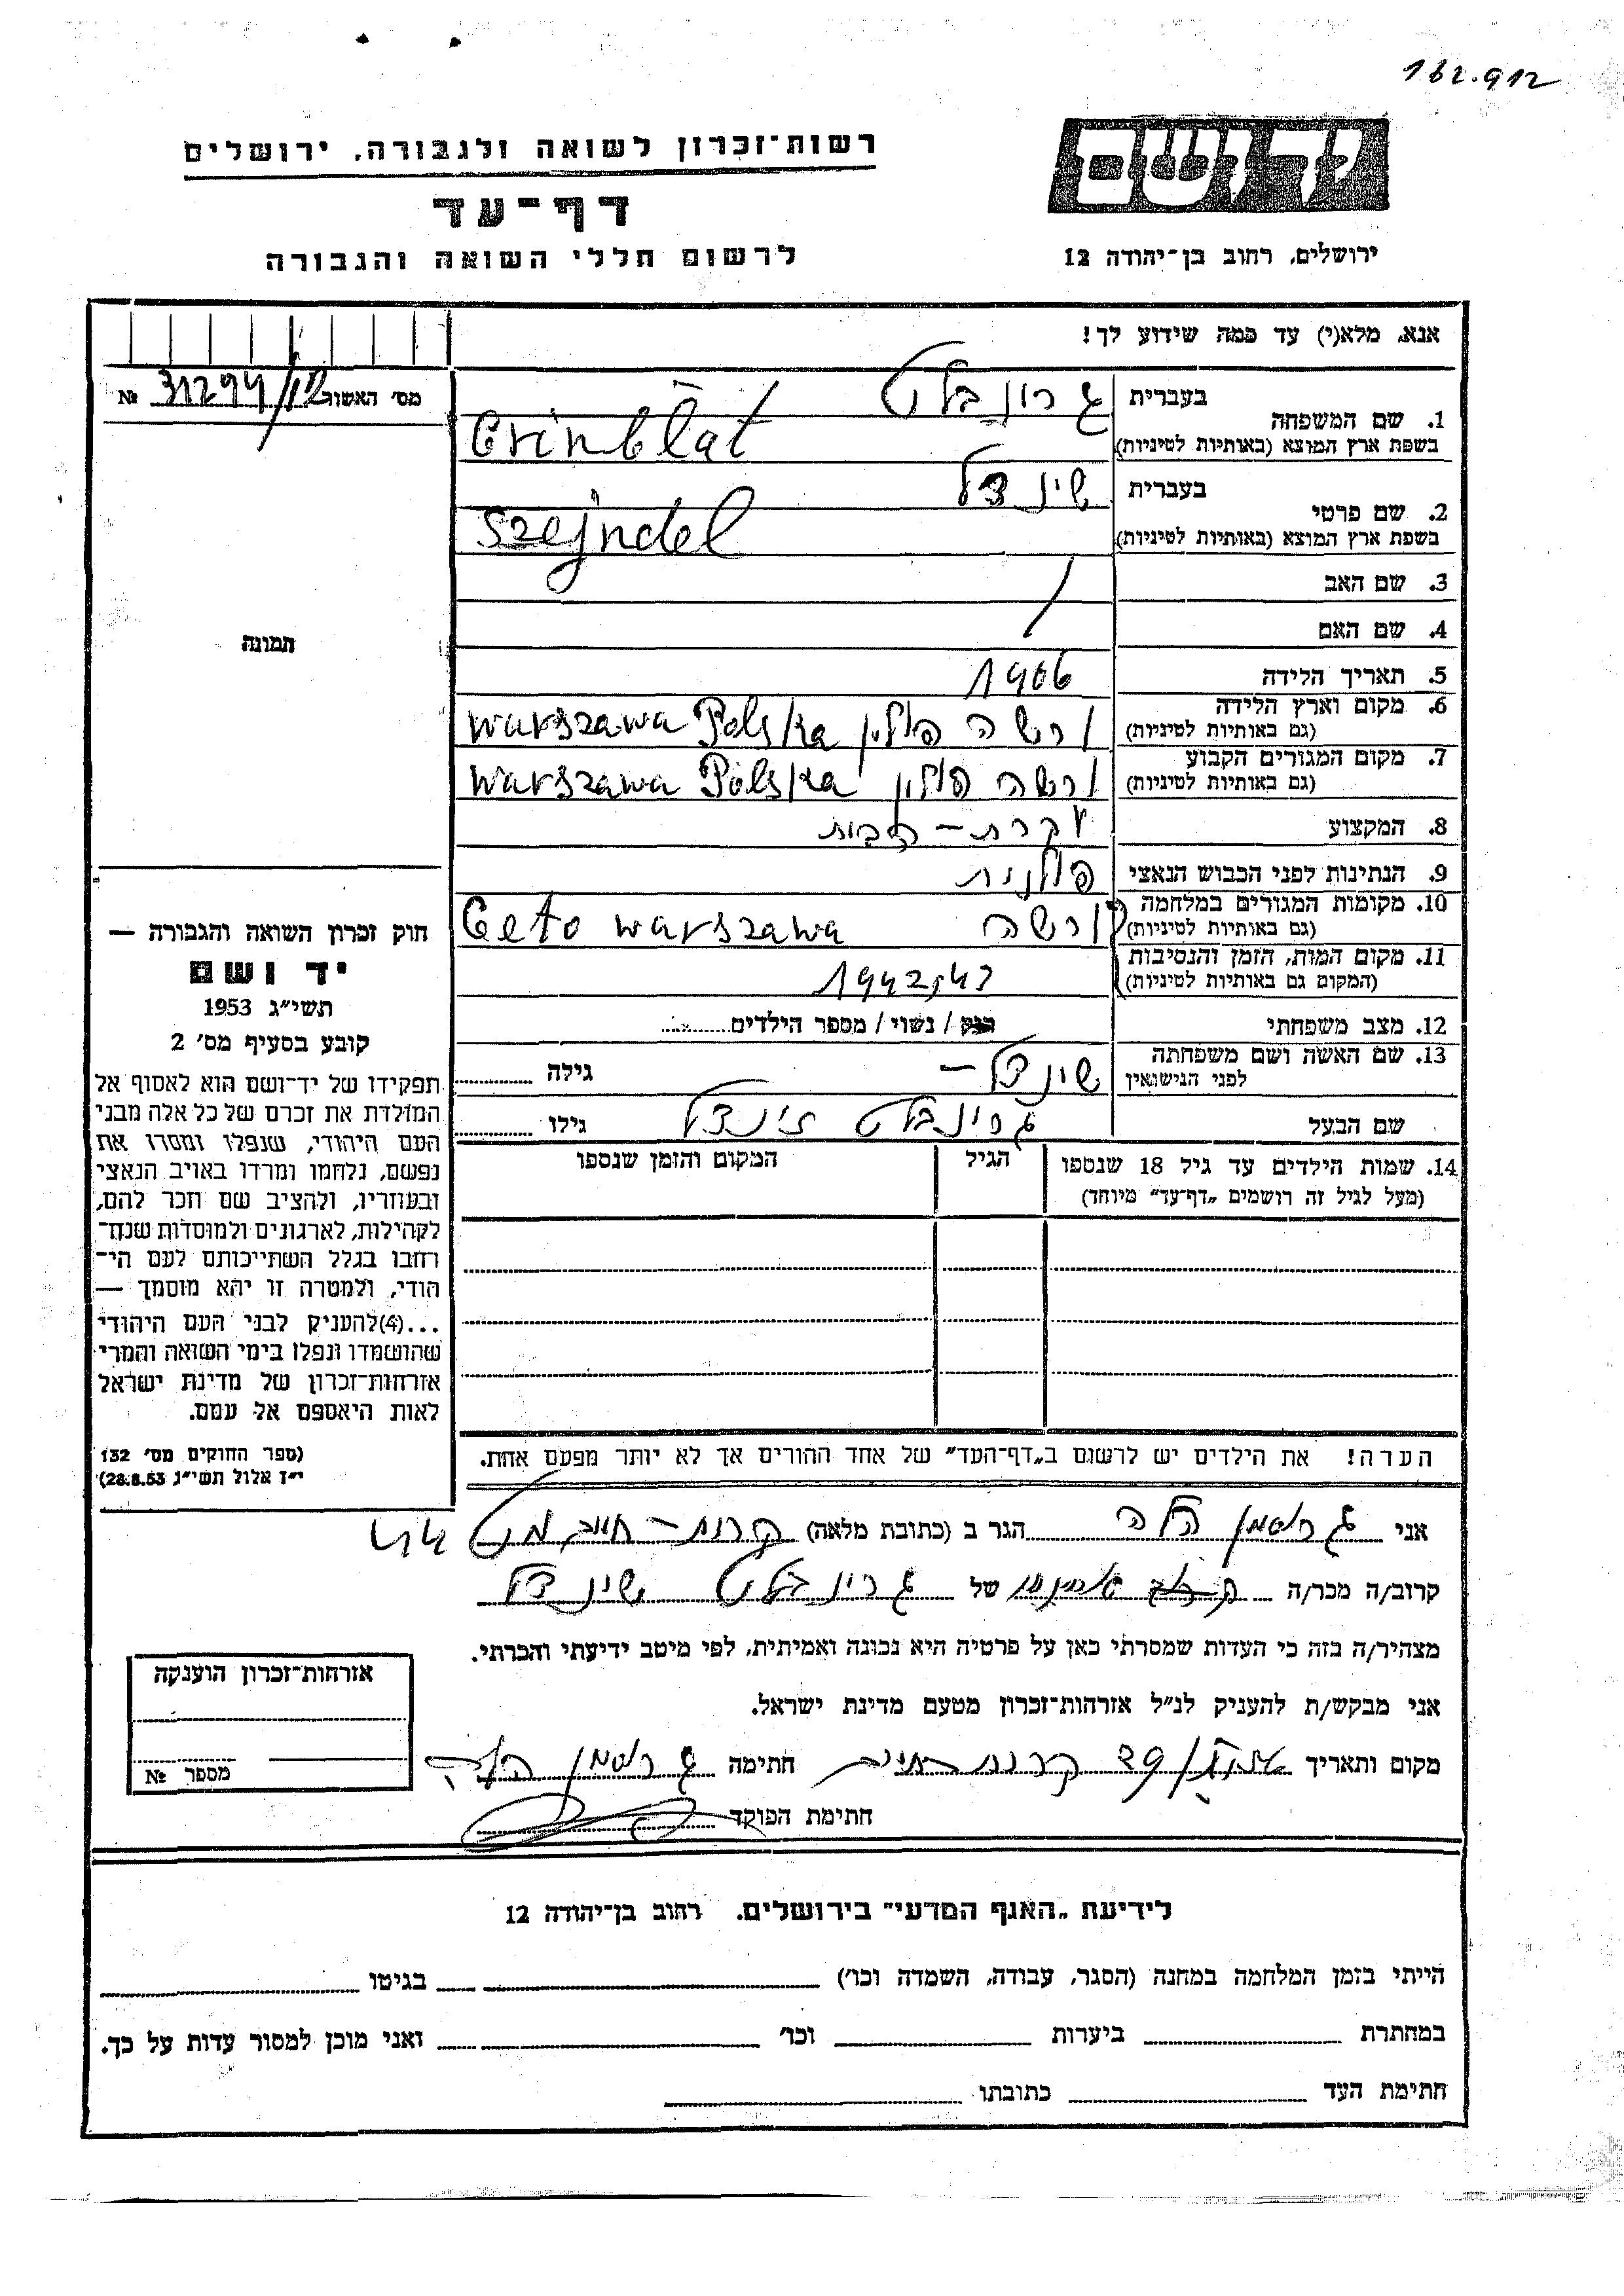 162.912
יד ושם
רשות־זכרון לשואה ולגבורה, ירושלים
דף־עד
לרשום חללי השואה והגבורה
ירושלים, רחוב בן־יהודה 12
אנא, מלא(י) עד כמה שידוע לך!
מס׳ האשור 31294/ № 
1. שם המשפחה
בעברית גרונבלט
בשפת ארץ המוצא (באותיות לטיניות) Grinblat
2. שם פרטי
בעברית שינדל
בשפת ארץ המוצא (באותיות לטיניות) Szejndel
3. שם האב
4. שם האם
5. תאריך הלידה 1906
6. מקום וארץ הלידה
(גם באותיות לטיניות) ורשה פולין warszawa Polska
7. מקום המגורים הקבוע
(גם באותיות לטיניות) ורשה פולין warszawa Polska
8. המקצוע עקרת - הבית
9. הנתינות לפני הכבוש הנאצי פולנית
10. מקומות המגורים במלחמה
(גם באותיות לטיניות) ורשה Geto warszawa
11. מקום המות, הזמן והנסיבות
(המקום גם באותיות לטיניות) 1942,43
12. מצב משפחתי רוק / נשוי / מספר הילדים
13. שם האשה ושם משפחתה
לפני הנישואין שינדל – גילה
שם הבעל גרינבלט גילו
14. שמות הילדים עד גיל 18 שנספו הגיל המקום והזמן שנספו
(מעל לגיל זה רושמים „דף־עד״ מיוחד)
תמונה
חוק זכרון השואה והגבורה —
יד ושם
תשי״ג 1953
קובע בסעיף מס׳ 2
תפקידו של יד־ושם הוא לאסוף אל
המולדת את זכרם של כל אלה מבני
העם היהודי, שנפלו ומסרו את
נפשם, נלחמו ומרדו באויב הנאצי
ובעוזריו, ולהציב שם וזכר להם,
לקהילות, לארגונים ולמוסדות שנח־
רחבו בגלל השתייכותם לעם הי־
הודי, ולמטרה זו יהא מוסמך —
...(4)להעניק לבני העם היהודי
שהושמדו ונפלו בימי השואה והמרי
אזרחות־זכרון של מדינת ישראל
לאות היאספם אל עמם.
(ספר החוקים מס׳ 132
י״ז אלול תשי״ג, 28.8.53)
הערה! את הילדים יש לרשום ב„דף־העד״ של אחד ההורים אך לא יותר מפעם אחת.
אני גרוסמן הלה הגר ב (כתובת מלאה) קרית-חיים
קרוב/ה מכר/ה של גרינבלט שינדל
מצהיר/ה בזה כי העדות שמסרתי כאן על פרטיה היא נכונה ואמיתית, לפי מיטב ידיעתי והכרתי.
אני מבקש/ת להעניק לנ״ל אזרחות־זכרון מטעם מדינת ישראל.
מקום ותאריך קרית חיים חתימה גרוסמן הלה
חתימת הפוקד
אזרחות־זכרון הוענקה
מספר №
לידיעת „האגף המדעי״ בירושלים. רחוב בן־יהודה 12
הייתי בזמן המלחמה במחנה (הסגר, עבודה, השמדה וכו׳) בגיטו
במחתרת ביערות וכו׳ ואני מוכן למסור עדות על כך.
חתימת העד כתובתו